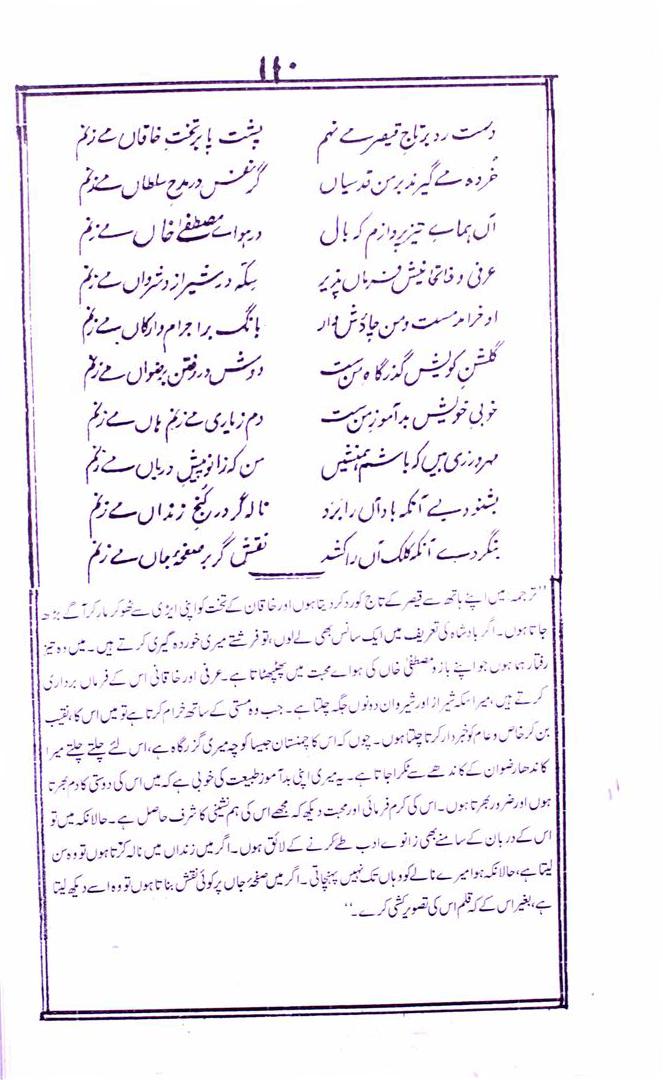 ۱۱۰
دست رد بر تاج قیصر مے نہم پشت پا بر تخت خاقاں مے زنم
خُردہ مے گیرند بر من قدسیاں گر نفس در مدح سلطاں مے زنم
آں ہماے تیز پروازم کہ بال در ہواے مصطفےٰ خاں مے زنم
عرفی و خاقانیش فرماں پذیر سکّہ در شیراز و شرواں مے زنم
او خرامد مست و من چاؤش وار بانگ بر اجرام و ارکاں مے زنم
گلشنِ کویش گذرگاہ من ست دوش در رفتن برضواں مے زنم
خوبیِ خویش بد آموز من ست دم ز یاری مے زنم ہاں مے زنم
مہر ورزی بیں کہ باشم ہمنشیں من کہ زانو پیشِ درباں مے زنم
بشنود بے آنکہ باد آں را برَد نالہ گر در کنجِ زنداں مے زنم
بنگرد بے آنکہ کلک آں را کشد نقش گر بر صفحۂ جاں مے زنم
''ترجمہ میں اپنے ہاتھ سے قیصر کے تاج کو رد کر دیتا ہوں اور خاقان کے تخت کو اپنی ایڑی سے ٹھوکر مار کر آگے بڑھ
جاتا ہوں۔ اگر بادشاہ کی تعریف میں ایک سانس بھی لے لوں، تو فرشتے میری خوردہ گیری کرتے ہیں۔ میں وہ تیز
رفتار ہما ہوں جو اپنے بازو مصطفیٰ خاں کی ہواے محبت میں پھڑپھڑاتا ہے۔ عرفی اور خاقانی اس کے فرماں برداری
کرتے ہیں، میرا سکہ شیراز اور شیروان دونوں جگہ چلتا ہے۔ جب وہ مستی کے ساتھ خرام کرتا ہے تو میں اس کا نقیب
بن کر خاص و عام کو خبردار کرتا چلتا ہوں۔ چوں کہ اس کا چمنستان جیسا کوچہ میری گزرگاہ ہے، اس لئے چلتے چلتے میرا
کاندھا رضوان کے کاندھے سے ٹکرا جاتا ہے۔ یہ میری اپنی بد آموز طبیعت کی خوبی ہے کہ میں اس کی دوستی کا دم بھرتا
ہوں اور ضرور بھرتا ہوں۔ اس کی کرم فرمائی اور محبت دیکھ کہ مجھے اس کی ہم نشینی کا شرف حاصل ہے۔ حالانکہ میں تو
اس کے دربان کے سامنے بھی زانوے ادب طے کرنے کے لائق ہوں۔ اگر میں زنداں میں نالہ کرتا ہوں تو وہ سن
لیتا ہے، حالانکہ ہوا میرے نالے کو وہاں تک نہیں پہنچاتی۔ اگر میں صفحۂ جاں پر کوئی نقش بناتا ہوں تو وہ اسے دیکھ لیتا
ہے، بغیر اس کے کہ قلم اس کی تصویر کشی کرے۔''